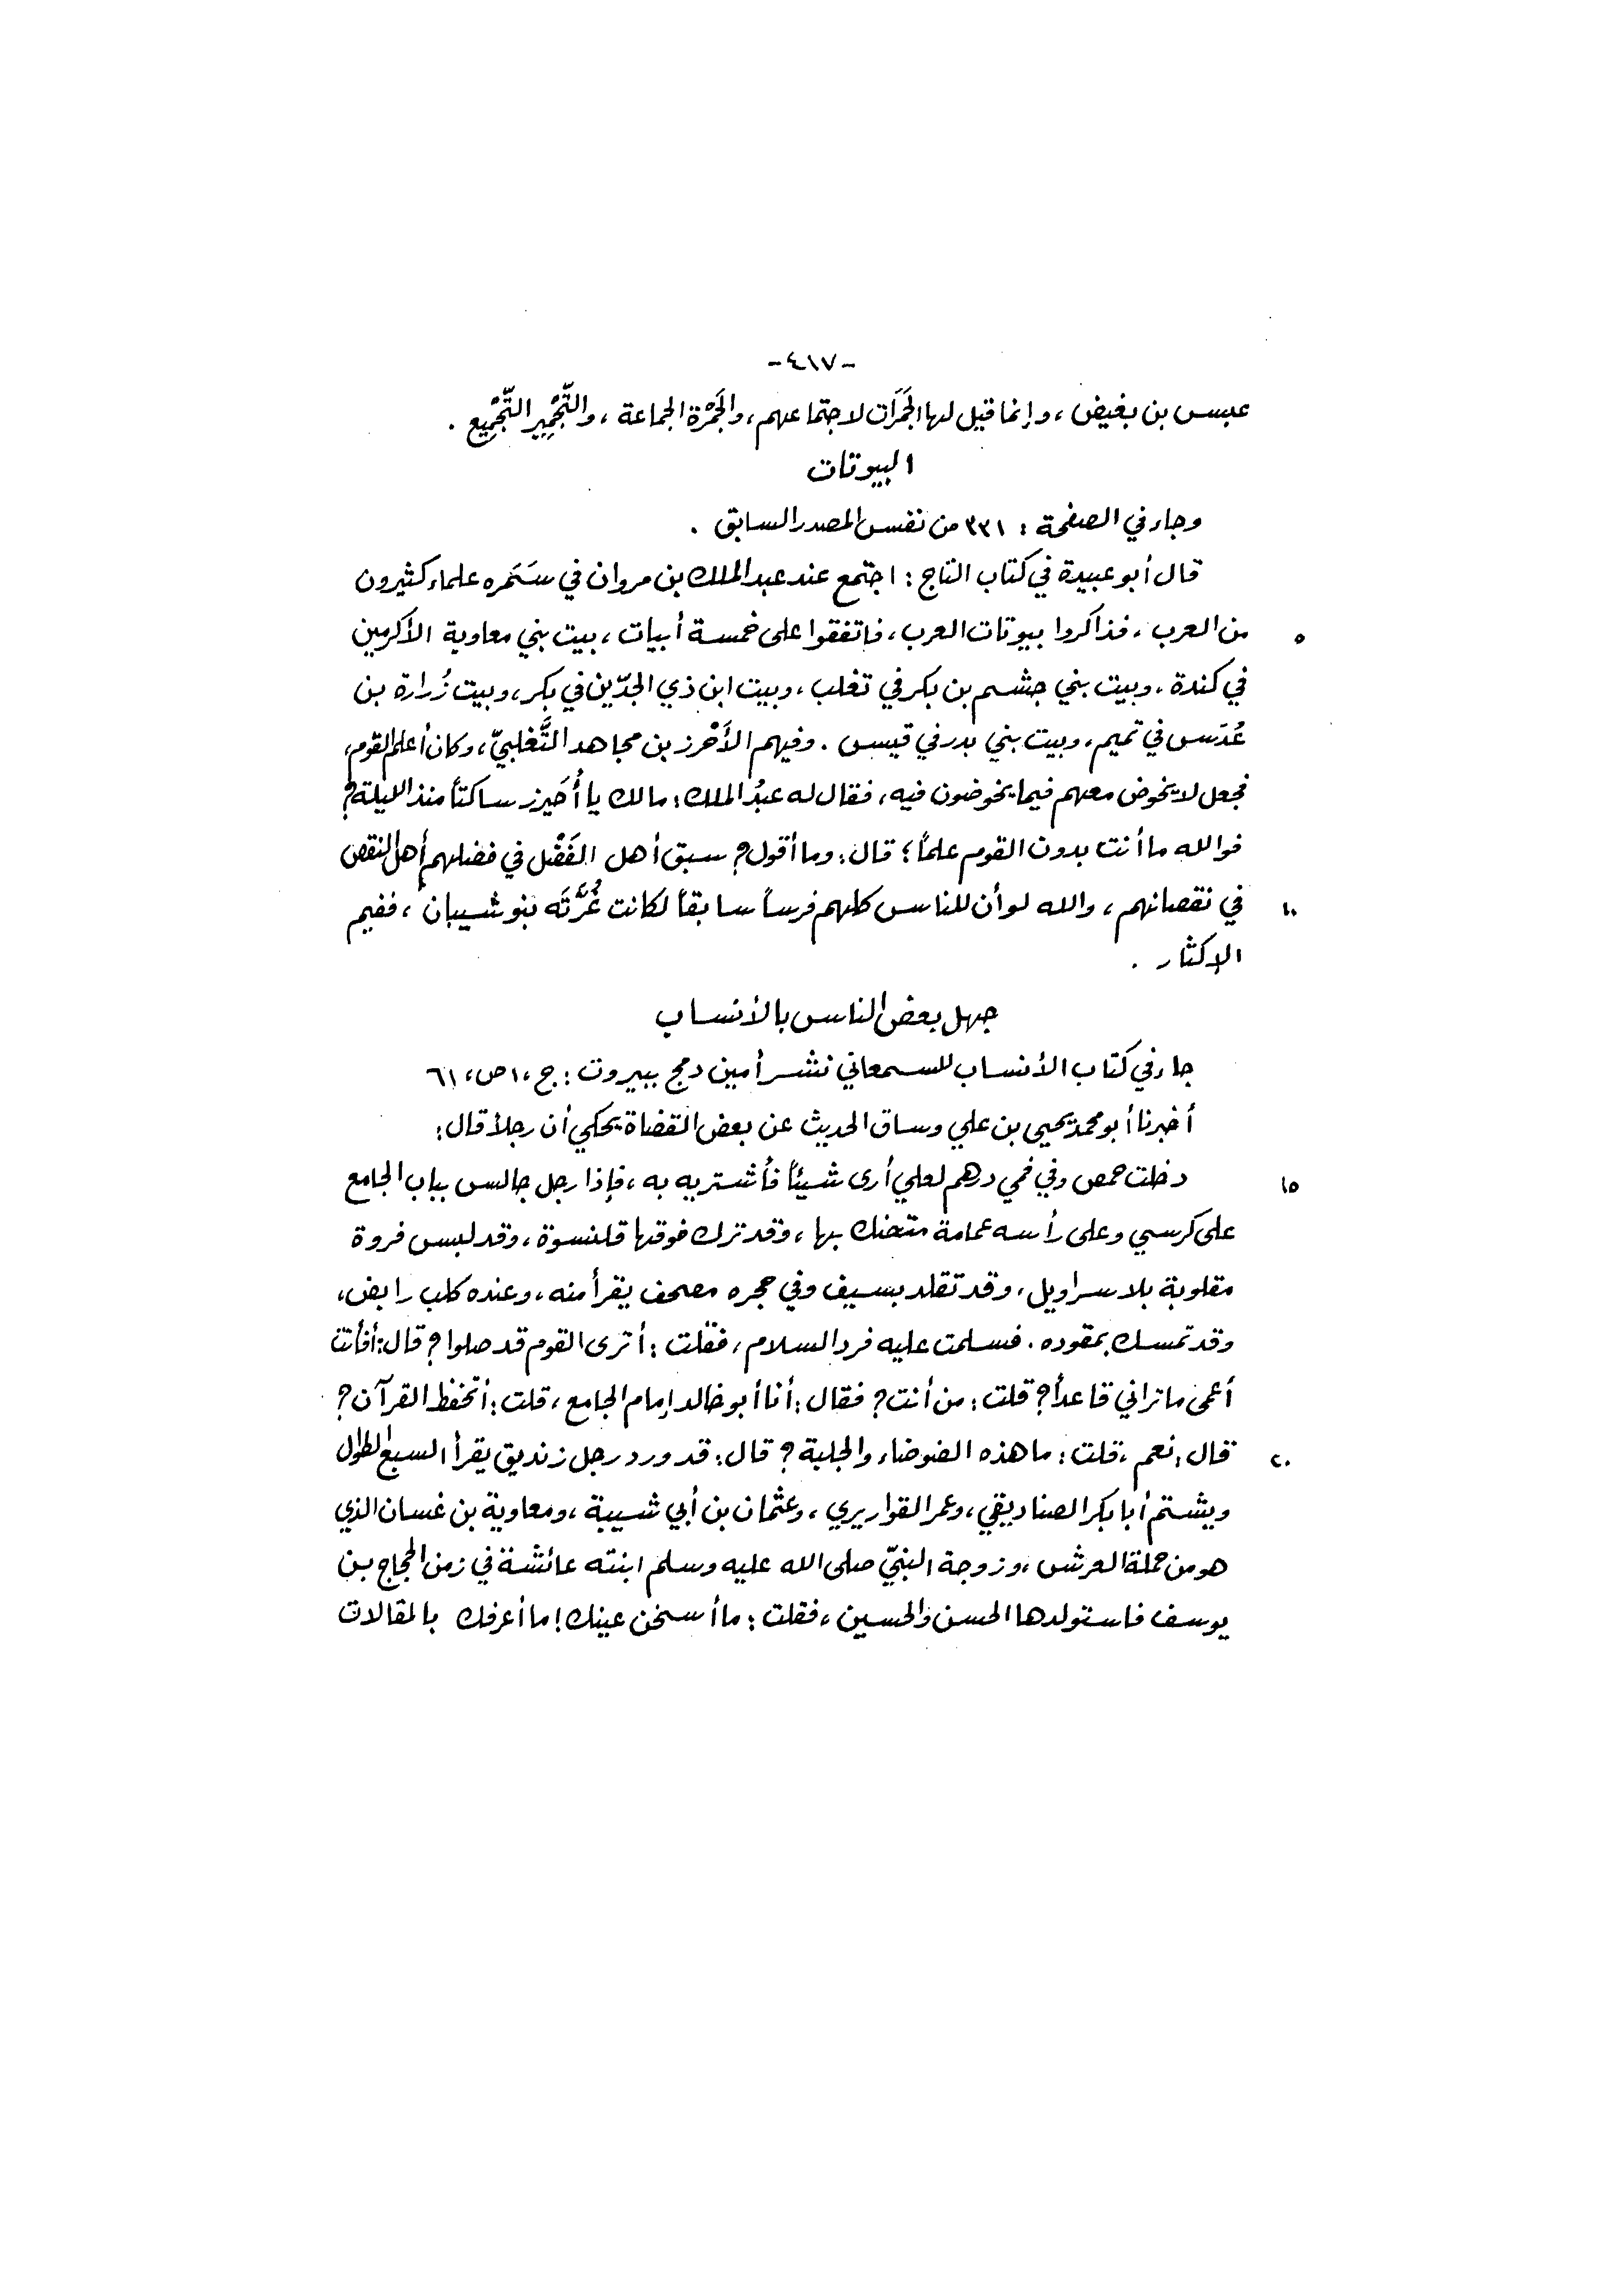 -٤١٧-
عبس بن بغيض ، وإنما قيل لها الجَمَرَات لاجتماعهم، والجَمْرة الجماعة ، والتَّجْمِير التَّجْمِيع .
البيوتات
وجاء في الصفحة : ٣٣١ من نفس المصدر السابق .
قال أبو عبيدة في كتاب التاج : اجتمع عند عبد الملك بن مروان في سَمَره علماء كثيرون
٥ من العرب ، فذاكروا بيوتات العرب ، فاتفقوا على خمسة أبيات ، بيت بني معاوية الأكرمين
في كندة ، وبيت بني جشم بن بكر في تغلب ، وبيت ابن ذي الجدّين في بكر ، وبيت زُرارة بن
عُدَس في تميم ، وبيت بني بدر في قيس . وفيهم الأَحْرز بن مجاهد التَّغلبيّ ، وكان أعلم القوم ،
فجعل لا يخوض معهم فيما يخوضون فيه ، فقال له عبدُ الملك : مالك يا أُحَيرز ساكتاً منذ الليلة ؟
فوالله ما أنت بدون القوم علماً ؛ قال : وما أقول ؟ سبق أهل الفَضْل في فضلهم أهل النقص
١٠ في نقصانهم ، والله لو أن للناس كلهم فرساً سابقاً لكانت غُرَّتَه بنو شيبان ، ففيم
الإكثار .
جهل بعض الناس بالأنساب
جاء في كتاب الأنساب للسمعاني نشر أمين دمج ببيروت : ج ،١ ص، ٦١
أخبرنا أبو محمد يحيى بن علي وساق الحديث عن بعض القضاة يحكي أن رجلاً قال :
١٥ دخلت حمص وفي فمي درهم لعلي أرى شيئاً فأشتريه به ، فإذا رجل جالس بباب الجامع
على كرسي وعلى رأسه عمامة متحنك بها ، وقد ترك فوقها قلنسوة ، وقد لبس فروة
مقلوبة بلا سراويل ، وقد تقلد بسيف وفي حجره مصحف يقرأ منه ، وعنده كلب رابض ،
وقد تمسك بمقوده . فسلمت عليه فرد السلام ، فقلت : أترى القوم قد صلوا ؟ قال : أفأنت
أعمى ما تراني قاعداً ؟ قلت : من أنت ؟ فقال : أنا أبو خالد إمام الجامع ، قلت : أتحفظ القرآن ؟
٢٠ قال : نعم ، قلت : ما هذه الضوضاء والجلبة ؟ قال : قد ورد رجل زنديق يقرأ السبع الطوال
ويشتم أبا بكر الصناديقي ، وعمر القواريري ، وعثمان بن أبي شيبة ، ومعاوية بن غسان الذي
هو من حملة العرش ، وزوجة النبيّ صلى الله عليه وسلم ابنته عائشة في زمن الحجاج بن
يوسف فاستولدها الحسن والحسين ، فقلت : ما أسخن عينك ! ما أعرفك بالمقالات